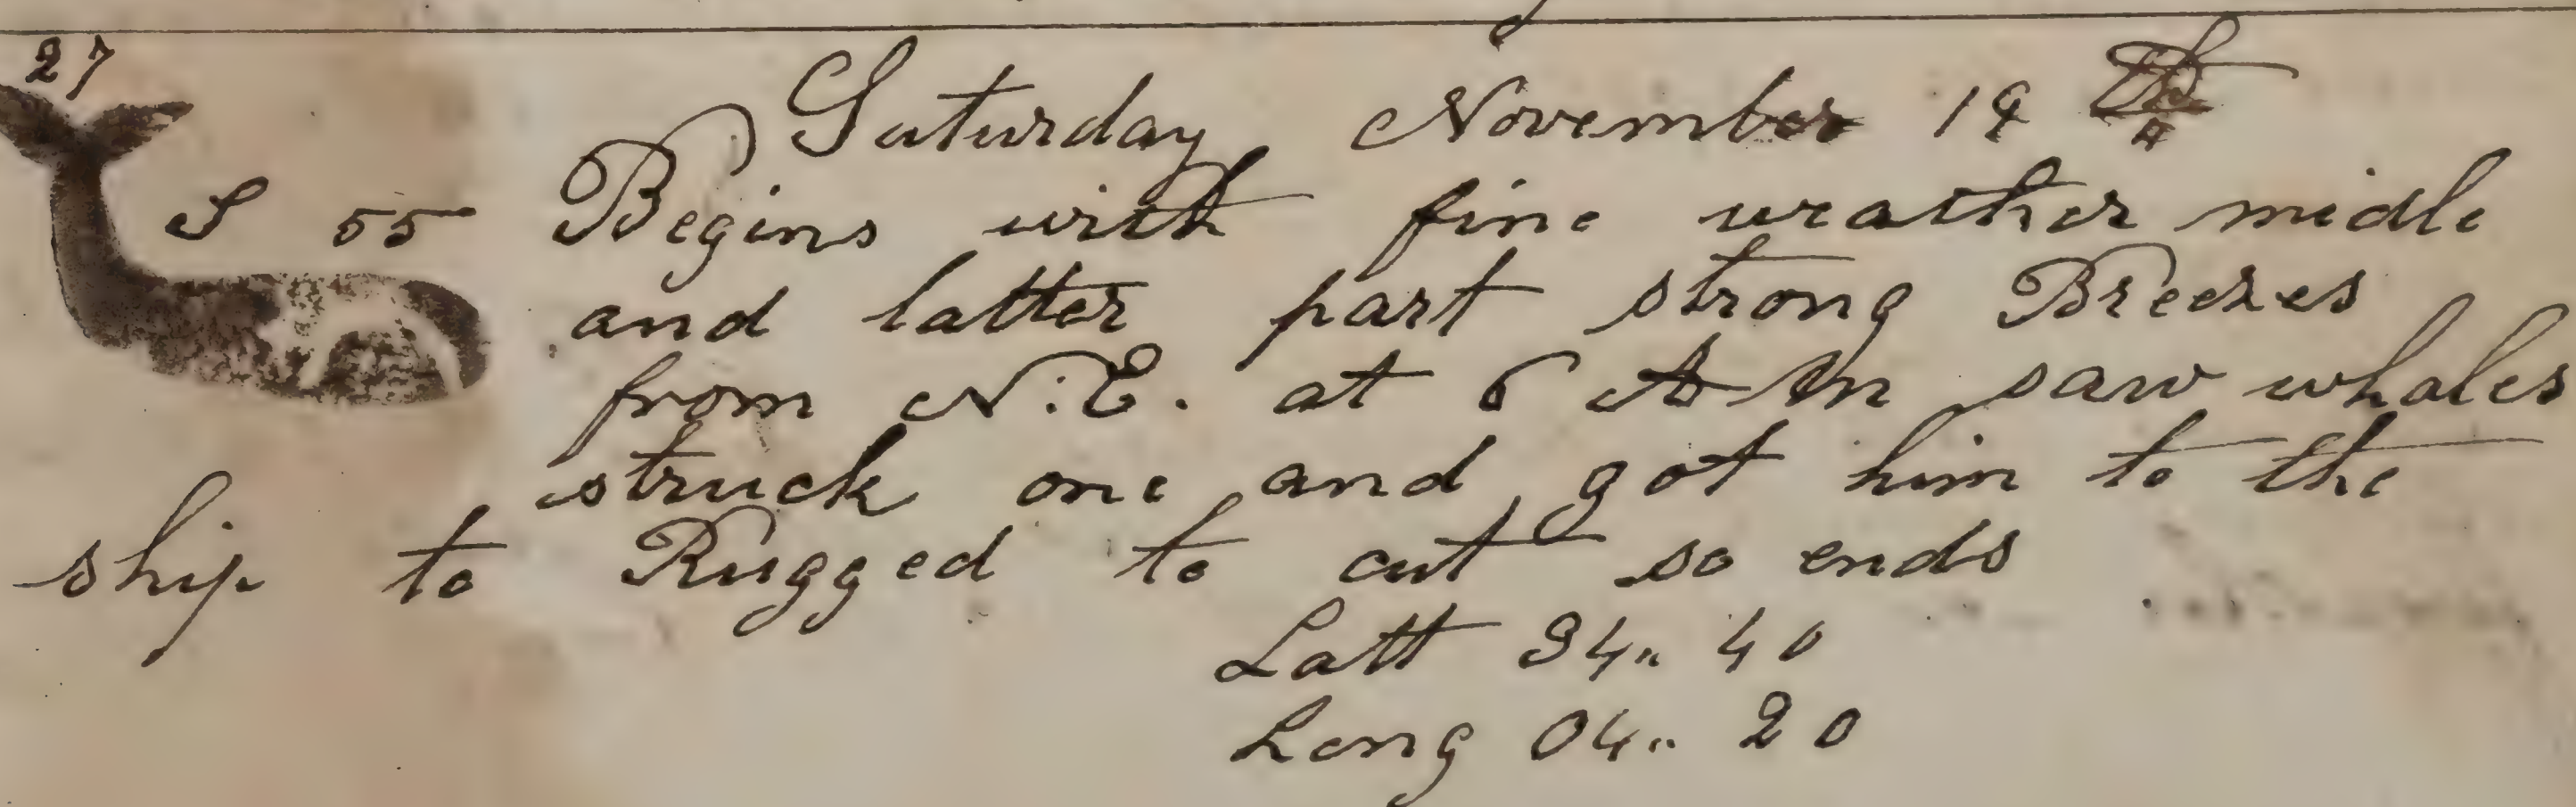 27
Saturday November 14th
S 55 Begins with fine weather midle
and latter part strong Breezes
from N.E. at 6 A M saw whales
struck one and got him to the
ship to Rugged to cut so ends
Latt 34,, 40
Long 04,, 20